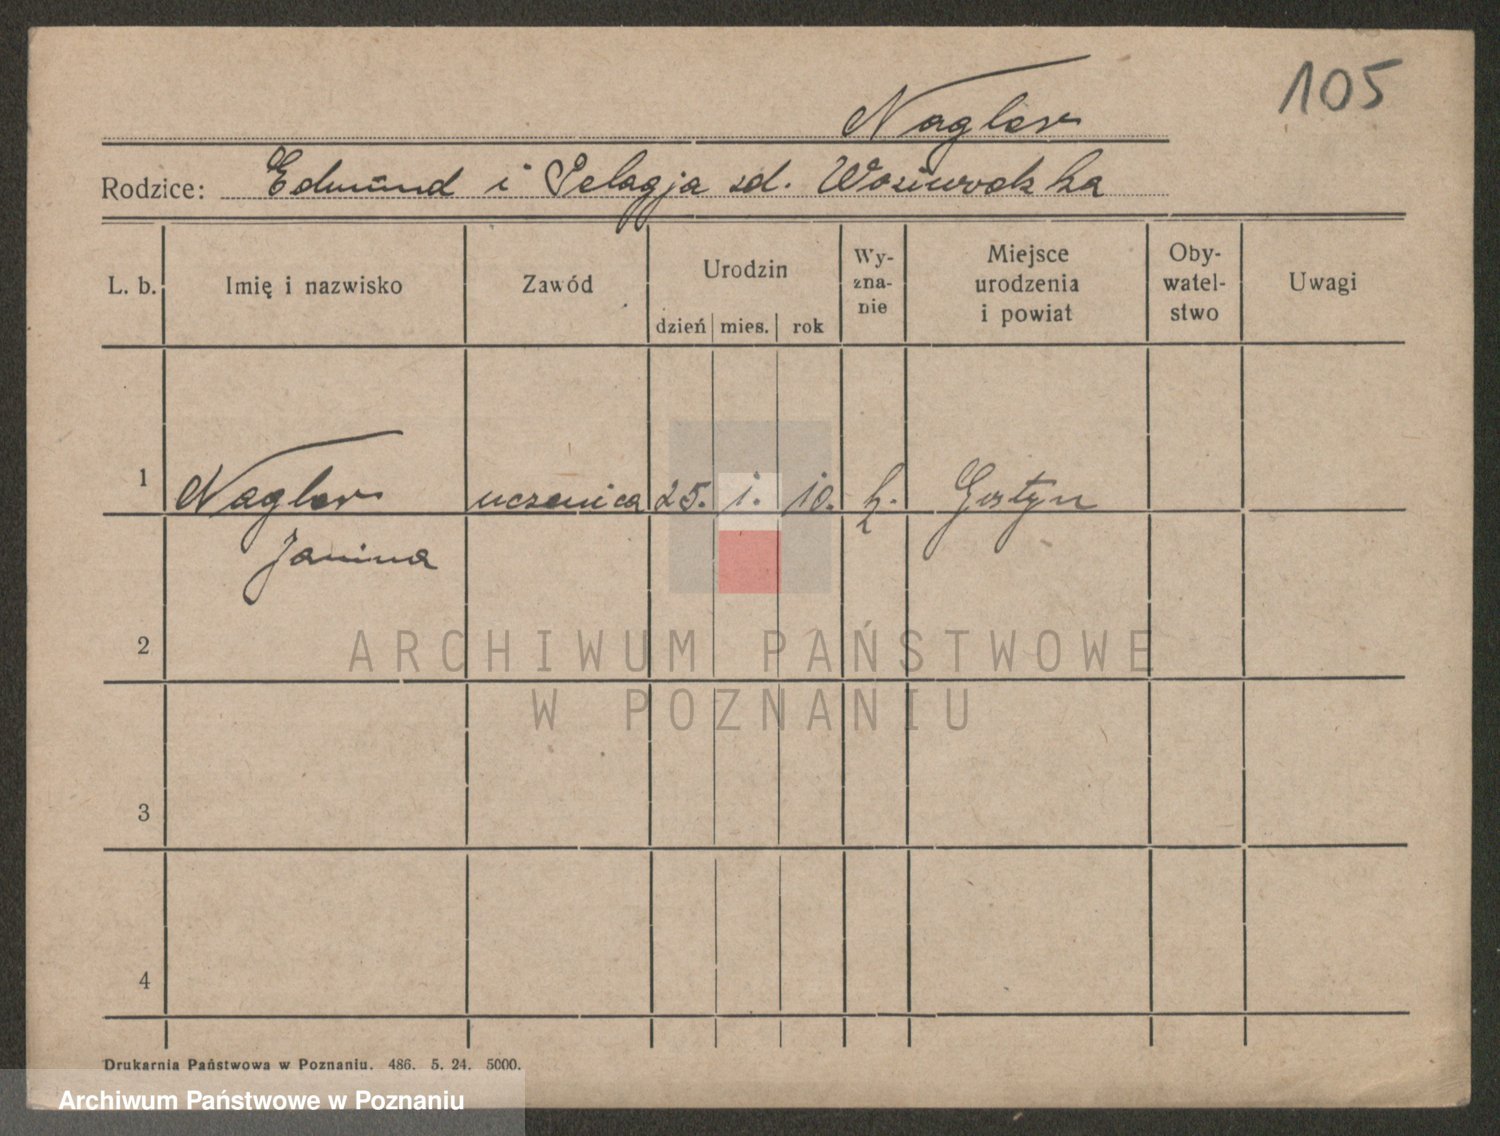 105
Nagler
Rodzice: Edmund i Pelagja zd.
L. b. Imię i nazwisko Zawód Urodzin dzień mies. rok Wy-zna-nie Miejsce urodzenia i powiat Oby-watel-stwo Uwagi
1 Nagler uczenica 25. i. 10. k. Gostyn
Janina
2
ARCHIWUM PAŃSTWOWE
W POZNANIU
3
4
Drukarnia Państwowa w Poznaniu. 486. 5. 24. 5000.
Archiwum Państwowe w Poznaniu